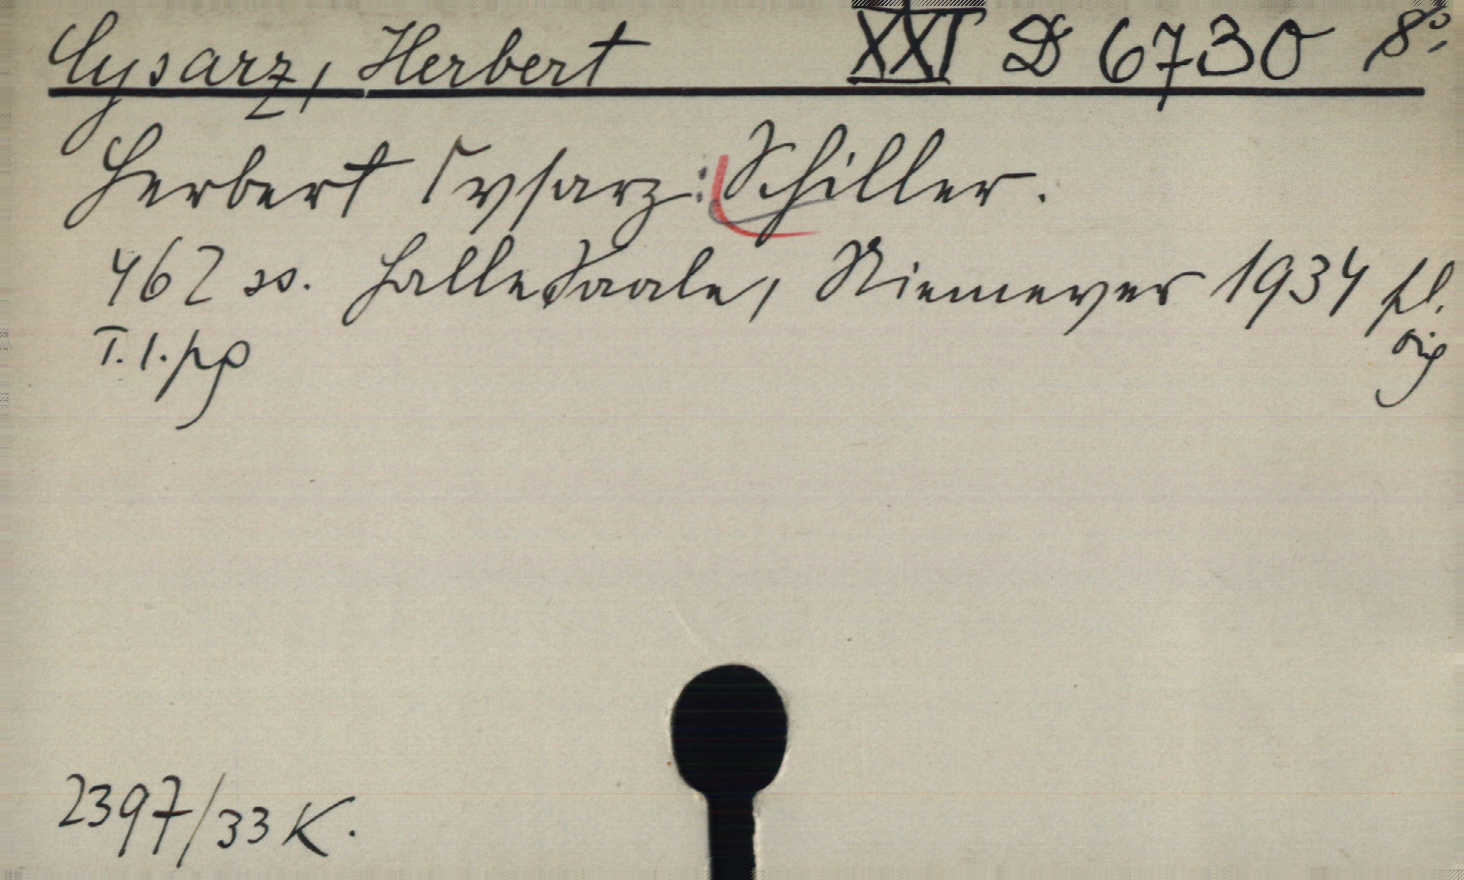 Cysarz, Herbert XXI D 6730 8°.
Herbert Cysarz: Schiller.
462 ss. Halle Saale, Niemeyer 1934 pl.
T. 1. pp
2397/33 K.